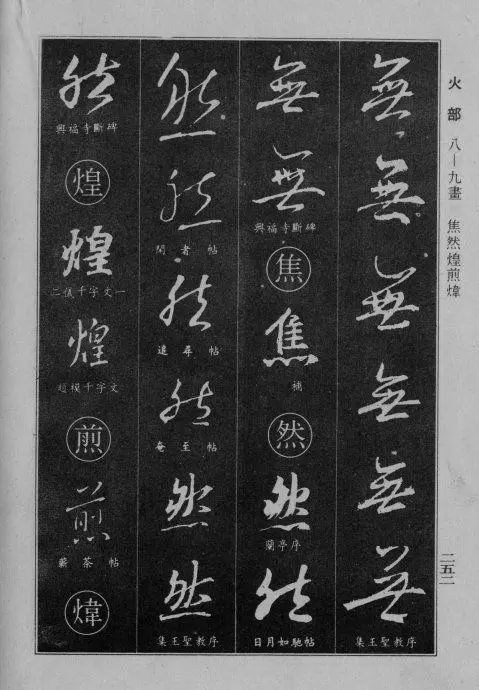 火部 八—九畫 焦然煌煎煒
二五二
無
無
無
無
無
無
集王聖教序
無
無
興福寺斷碑
焦
焦
補
然
然
蘭亭序
然
日月如馳帖
然
然
者帖
然
追尋帖
然
奄至帖
然
然
集王聖教序
然
興福寺斷碑
煌
煌
二儀千字文一
煌
趙模千字文
煎
煎
茶帖
煒